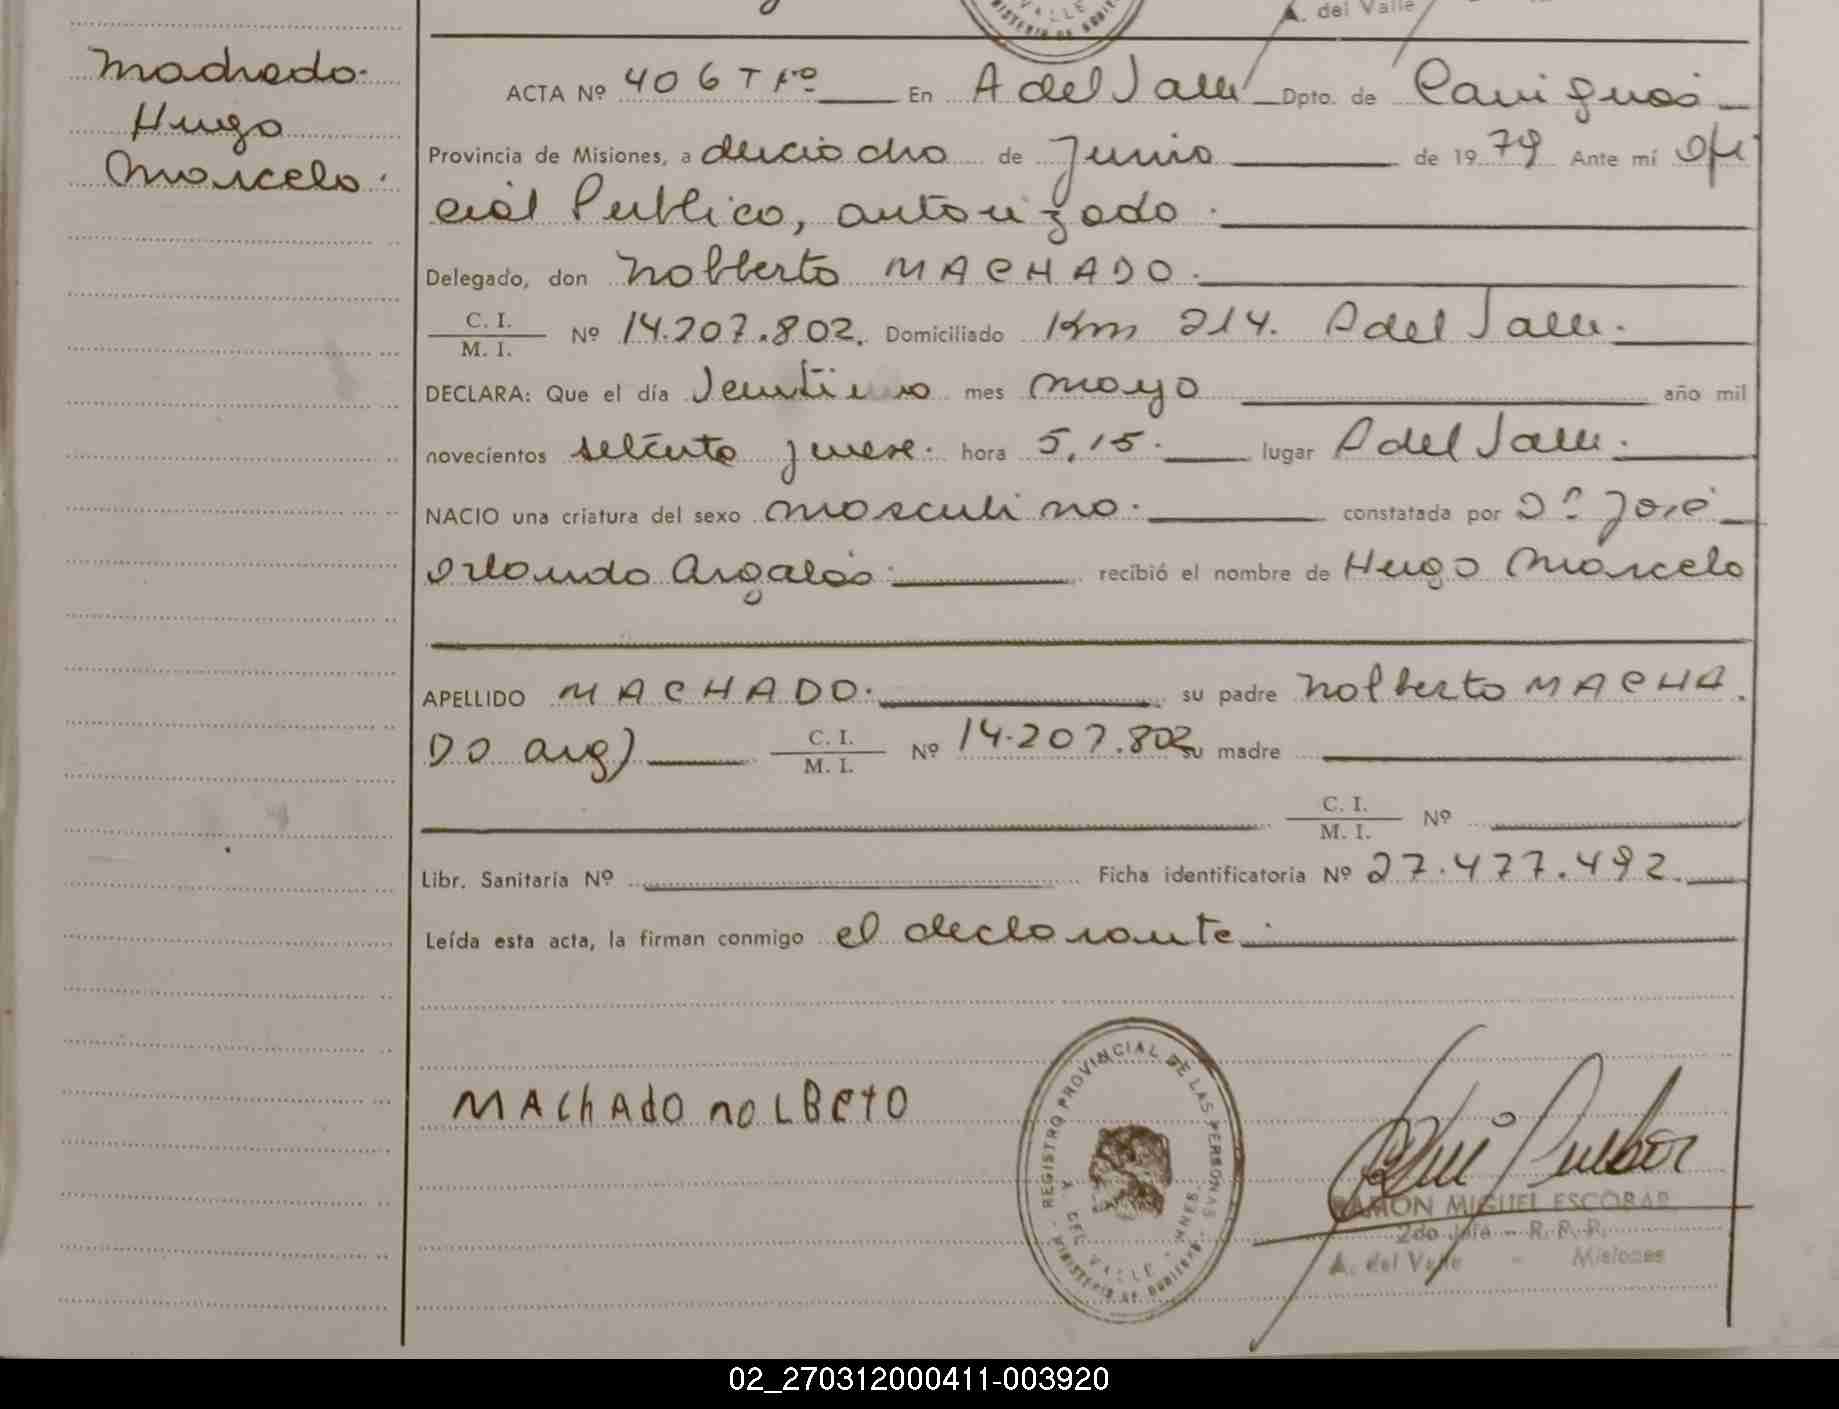 A. del Valle
Machado
Hugo
Marcelo.
ACTA Nº 406 Tº Fº En A del Valle Dpto. de Cainguás
Provincia de Misiones, a dieciocho de Junio de 1979 Ante mí Ofi
cial Publico, autorizado.
Delegado, don Nolberto MACHADO.
C. I. / M. I. Nº 14.207.802. Domiciliado Km 214. A del Valle.
DECLARA: Que el día mes mayo año mil
novecientos setenta y nueve. hora 5,15. lugar A del Valle.
NACIO una criatura del sexo masculino. constatada por Dr José
Orlando Argalás. recibió el nombre de Hugo Marcelo
APELLIDO MACHADO. su padre Nolberto MACHA
DO arg) C. I. / M. I. Nº 14.207.802 su madre
C. I. / M. I. Nº
Libr. Sanitaria Nº Ficha identificatoria Nº 27.477.492.
Leída esta acta, la firman conmigo el declarante.
MAChAdO noLBetO
REGISTRO PROVINCIAL DE LAS PERSONAS
A. DEL VALLE - MNES.
MINISTERIO DE GOBIERNO
RAMON MIGUEL ESCOBAR
2do Jefe - R. P. P.
A. del Valle - Misiones
02_270312000411-003920